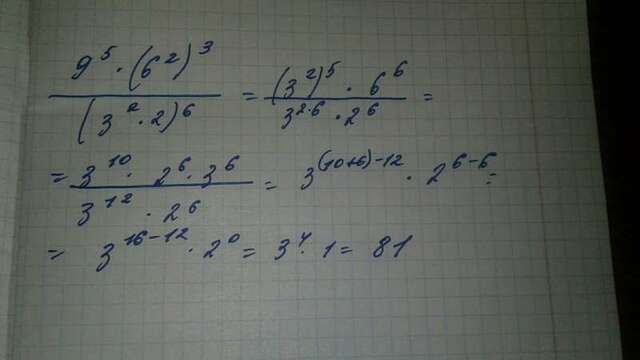 9⁵·(6²)³ / (3²·2)⁶ = (3²)⁵·6⁶ / 3²·⁶·2⁶ =
= 3¹⁰·2⁶·3⁶ / 3¹²·2⁶ = 3⁽¹⁰⁺⁶⁾⁻¹²·2⁶⁻⁶ =
= 3¹⁶⁻¹²·2⁰ = 3⁴·1 = 81